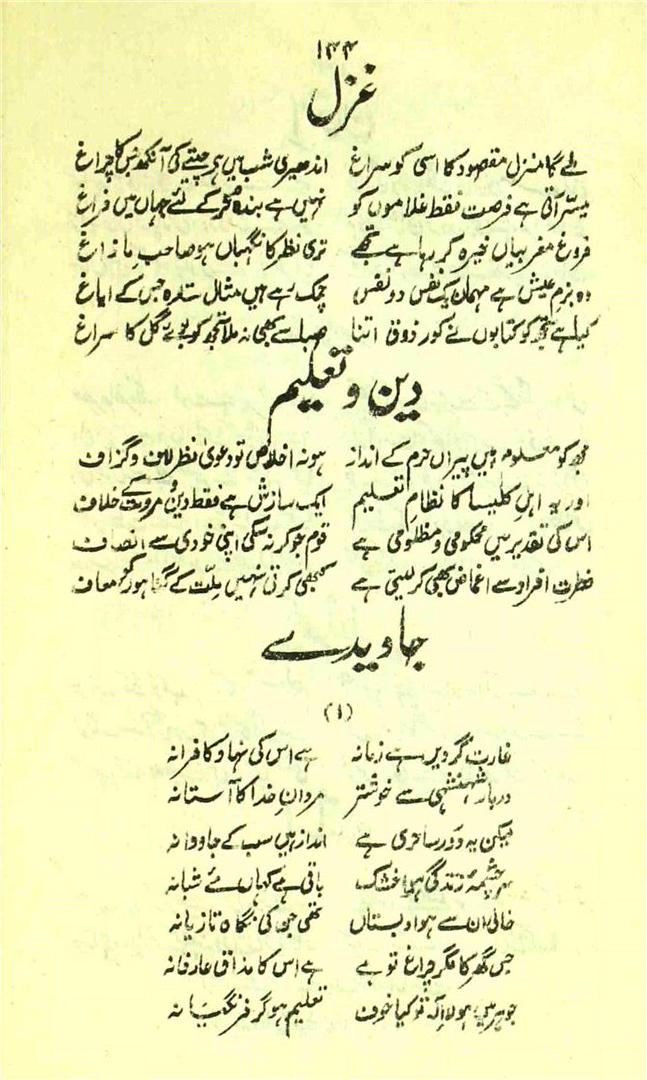 ۱۴۴
غزل
ملے گا منزل مقصود کا اسی کو سراغ اندھیری شب میں ہے چیتے کی آنکھ جس کا چراغ
میسّر آتی ہے فرصت فقط غلاموں کو نہیں ہے بندہ حُر کے لئے جہاں میں فراغ
فروغ مغربیاں خیرہ کر رہا ہے تجھے تری نظر کا نگہباں ہو صاحبِ مازاغ
وہ بزمِ عیش ہے مہمان یک نفس دو نفس چمک رہے ہیں مثال ستارہ جس کے ایاغ
کیا ہے تجھ کو کتابوں نے کور ذوق اتنا صبا سے بھی نہ ملا تجھ کو بوئے گل کا سراغ
دین و تعلیم
مجھ کو معلوم ہیں پیرانِ حرم کے انداز ہو نہ اخلاص تو دعویٰ نظر لاف و گزاف
اور یہ اہلِ کلیسا کا نظامِ تعلیم ایک سازش ہے فقط دین و مروت کے خلاف
اس کی تقدیر میں محکومی و مظلومی ہے قوم جو کر نہ سکی اپنی خودی سے انصاف
فطرت افراد سے اغماض بھی کر لیتی ہے کبھی کرتی نہیں ملّت کے گناہوں کو معاف
جاوید سے
(۱)
غارت گرِ دیں ہے زمانہ ہے اس کی نہاد کافرانہ
دربار شہنشہی سے خوشتر مردانِ خدا کا آستانہ
لیکن یہ دَورِ ساحری ہے انداز ہیں سب کے جادوانہ
سرچشمۂ زندگی ہوا خشک باقی ہے کہاں مئے شبانہ
خالی ان سے ہوا دبستاں تھی جن کی نگاہ تازیانہ
جس گھر کا مگر چراغ تو ہے ہے اس کا مذاق عارفانہ
جوہر میں ہو لا اِلہ تو کیا خوف تعلیم ہو گر فرنگیانہ